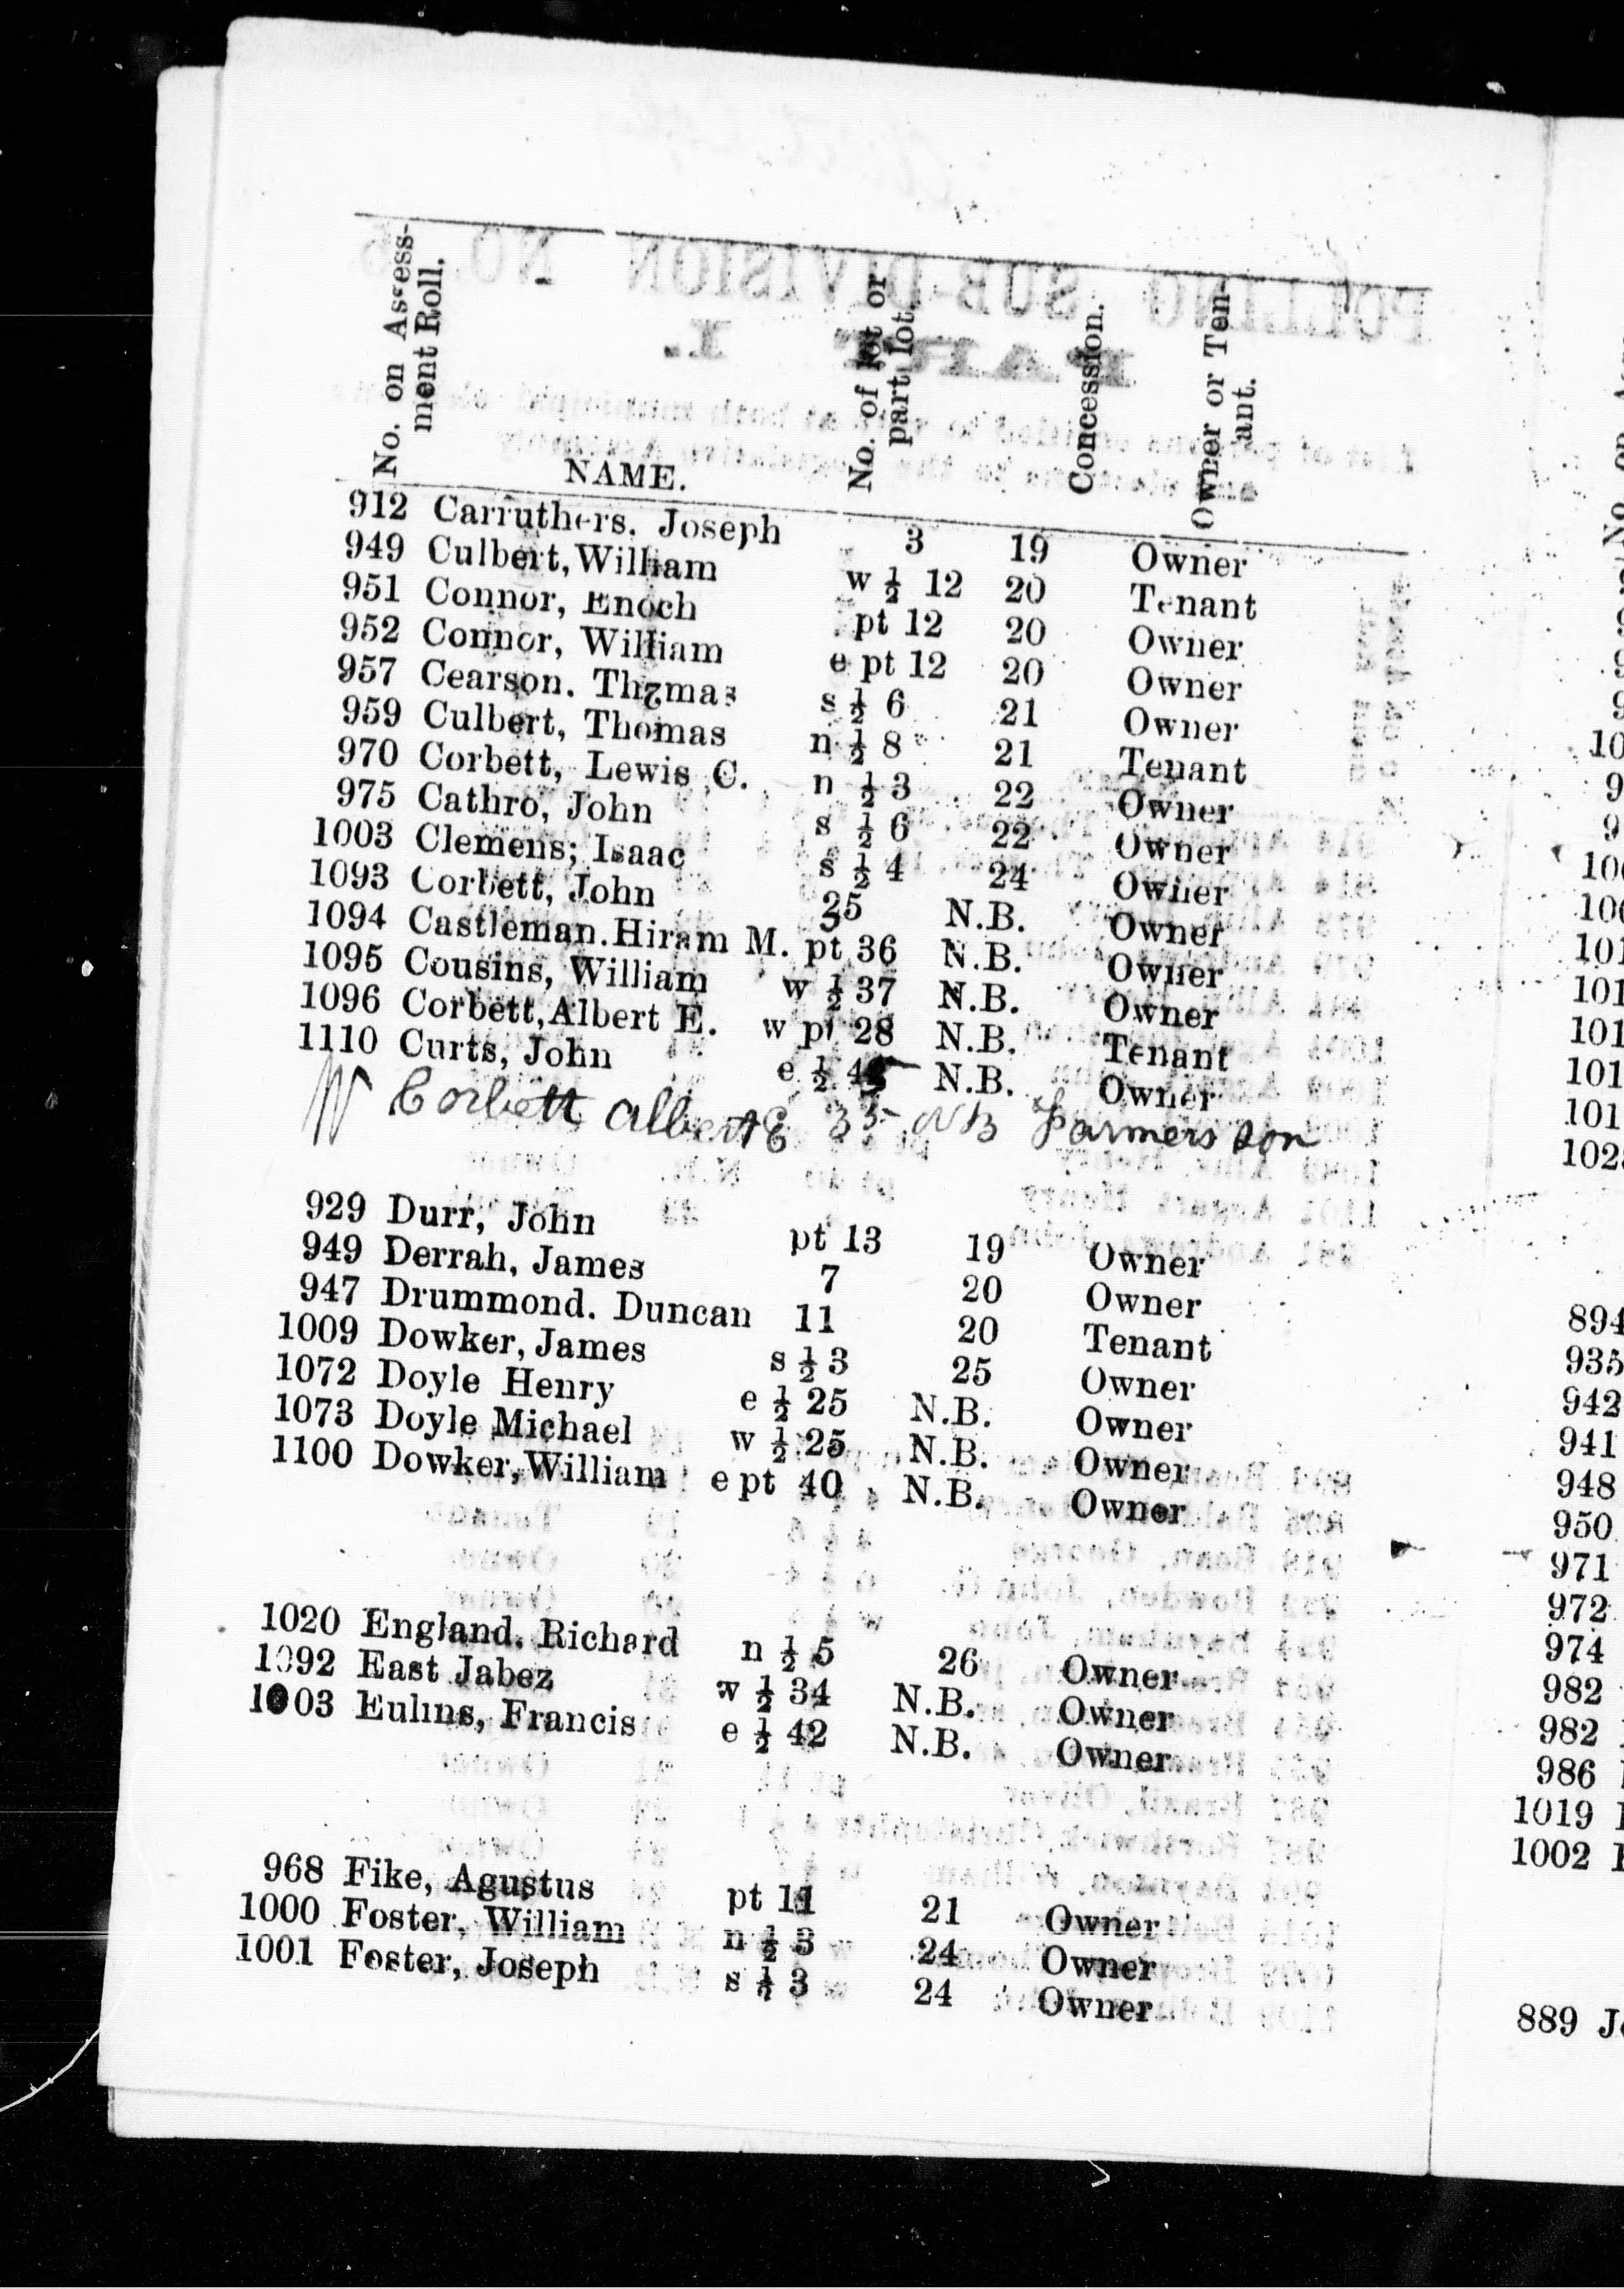 No. on Assess-
ment Roll.
NAME.
No. of lot or
part lot.
Concession.
Owner or Ten-
ant.
912 Carruthers. Joseph 3 19 Owner
949 Culbert, William w ½ 12 20 Tenant
951 Connor, Enoch pt 12 20 Owner
952 Connor, William e pt 12 20 Owner
957 Cearson. Thomas s ½ 6 21 Owner
959 Culbert, Thomas n ½ 8 21 Tenant
970 Corbett, Lewis C. n ½ 3 22 Owner
975 Cathro, John s ½ 6 22 Owner
1003 Clemens; Isaac s ½ 4 24 Owner
1093 Corbett, John 35 N.B. Owner
1094 Castleman. Hiram M. pt 36 N.B. Owner
1095 Cousins, William w ½ 37 N.B. Owner
1096 Corbett, Albert E. w pt 28 N.B. Tenant
1110 Curts, John e ½ 45 N.B. Owner
Corbett Albert E 35 NB Farmers son
929 Durr, John pt 13 19 Owner
949 Derrah, James 7 20 Owner
947 Drummond. Duncan 11 20 Tenant
1009 Dowker, James s ½ 3 25 Owner
1072 Doyle Henry e ½ 25 N.B. Owner
1073 Doyle Michael w ½ 25 N.B. Owner
1100 Dowker, William e pt 40 N.B. Owner
1020 England. Richard n ½ 5 26 Owner
1092 East Jabez w ½ 34 N.B. Owner
1003 Francis e ½ 42 N.B. Owner
968 Fike, Agustus pt 11 21 Owner
1000 Foster, William n ½ 3 24 Owner
1001 Foster, Joseph s ½ 3 24 Owner
894
935
942
941
948
950
971
972
974
982
982
986
1019
1002
889